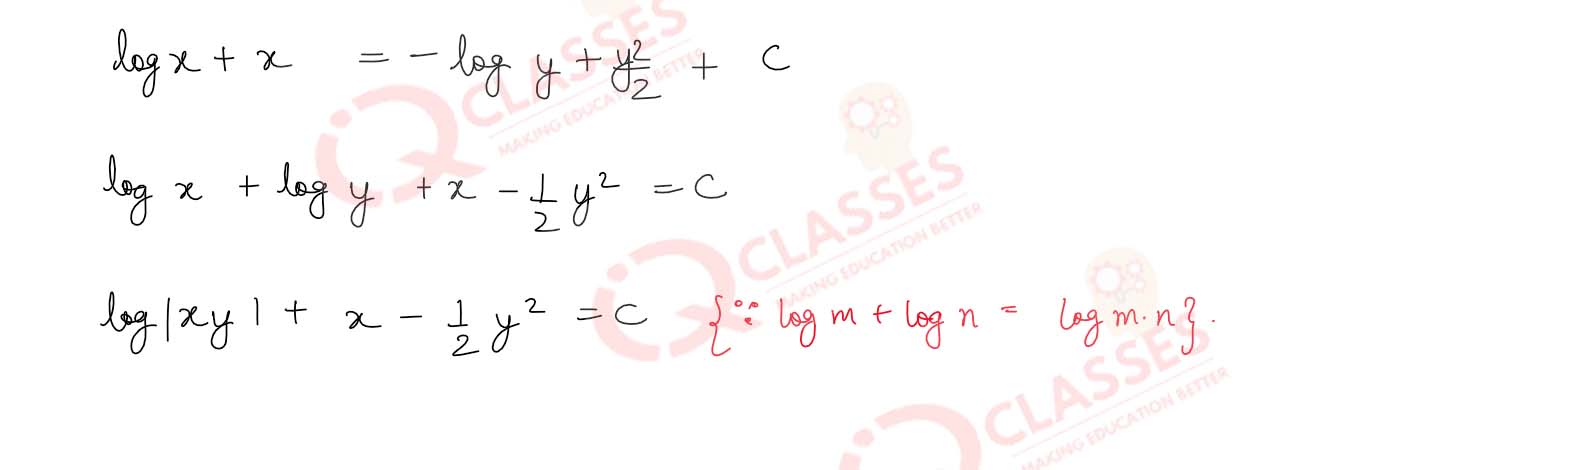 log x + x = - log y + y²/2 + C
log x + log y + x - 1/2 y² = C
log|xy| + x - 1/2 y² = C {∵ log m + log n = log m·n}.
CLASSES
MAKING EDUCATION BETTER
CLASSES
MAKING EDUCATION BETTER
CLASSES
MAKING EDUCATION BETTER